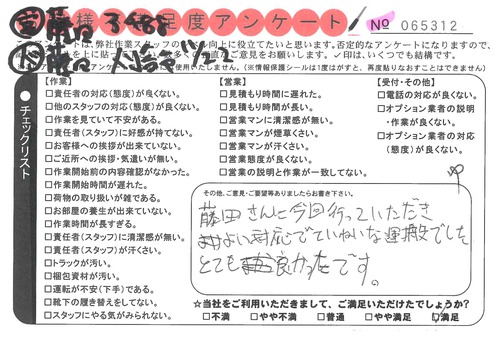 様 満足度アンケート
No 065312
3488
チェックリスト
【作業】
□責任者の対応(態度)が良くない。
□他のスタッフの対応(態度)が良くない。
□作業を見ていて不安がある。
□責任者(スタッフ)に好感が持てない。
□お客様への挨拶が出来ていない。
□ご近所への挨拶・気遣いが無い。
□作業開始前の内容確認がなかった。
□作業開始時間が遅れた。
□荷物の取り扱いが雑である。
□お部屋の養生が出来ていない。
□作業時間が長すぎる。
□責任者(スタッフ)に清潔感が無い。
□責任者(スタッフ)が汗くさい。
□トラックが汚い。
□梱包資材が汚い。
□運転が不安(下手)である。
□靴下の履き替えをしてない。
□スタッフにやる気がみられない。
【営業】
□見積もり時間に遅れた。
□見積もり時間が長い。
□営業マンに清潔感が無い。
□営業マンが煙草くさい。
□営業マンが汗くさい。
□営業態度が良くない。
□営業の説明と作業が一致してない。
【受付・その他】
□電話の対応が良くない。
□オプション業者の説明
・作業が良くない。
□オプション業者の対応
(態度)が良くない。
その他、ご意見・ご要望等ありましたらお書き下さい。
藤田さんに今回行っていただき
よい対応でていねいな運搬でした
とても良かったです。
☆当社をご利用いただきまして、ご満足いただけたでしょうか?
□不満 □やや不満 □普通 □やや満足 □満足